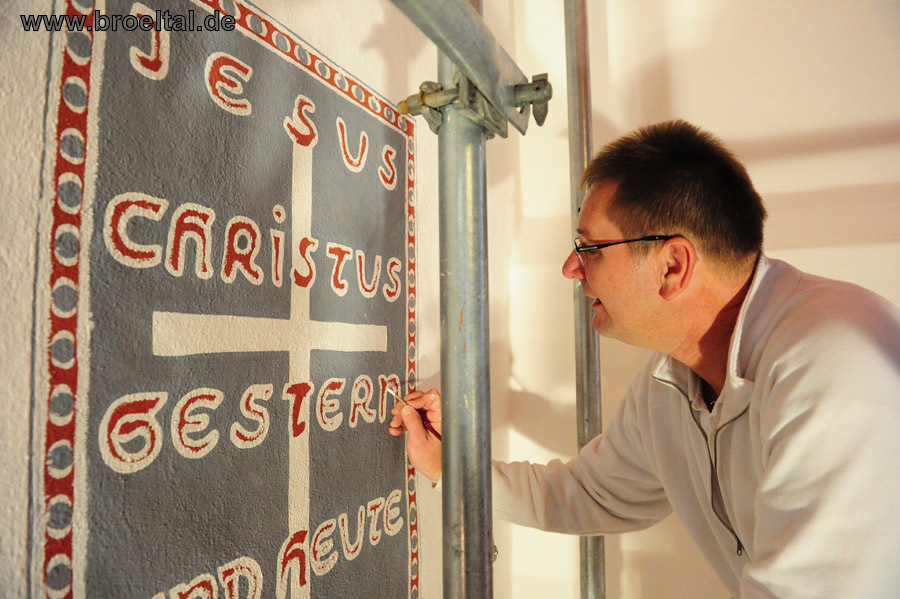 www.broeltal.de
JESUS
CHRISTUS
GESTERN
UND HEUTE